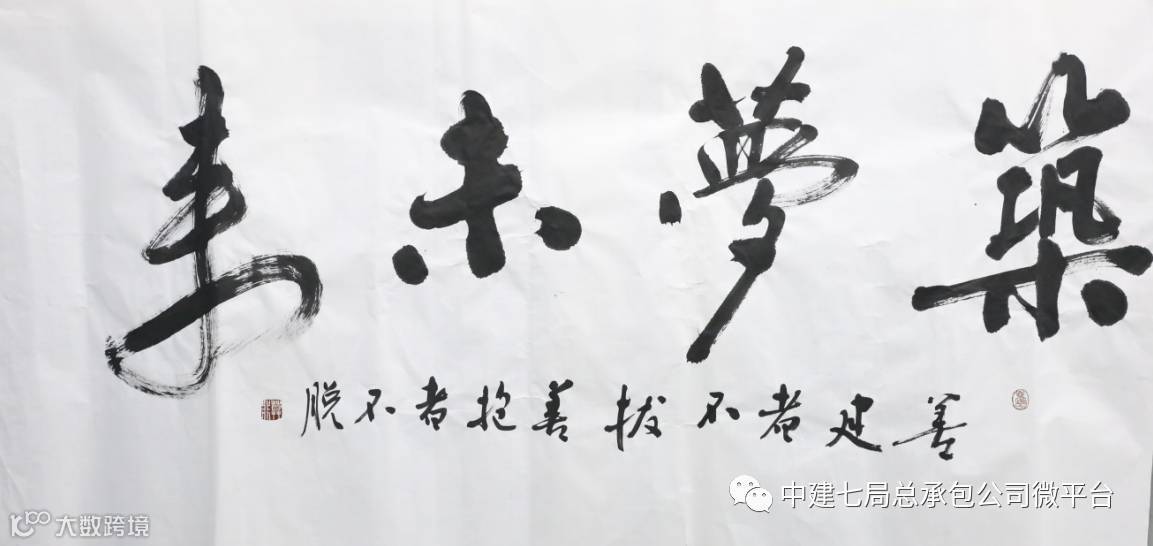 築夢未来
善建者不拔善抱者不脱
中建七局总承包公司微平台
大数跨境